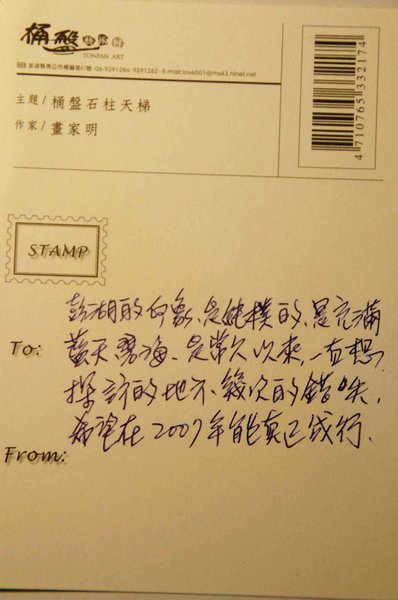 桶盤
TONPAN ART
澎湖縣馬公市桶盤里47號‧06-9291286 9291262‧E-mail:love501@ms43.hinet.net
主題/桶盤石柱天梯
作家/畫家明
4 710765 332174
STAMP
To:
澎湖的印象、是純樸的、是充滿
藍天碧海、是常久以來,一直想
探訪的地方、幾次的錯失,
希望在2007年能真正成行.
From: